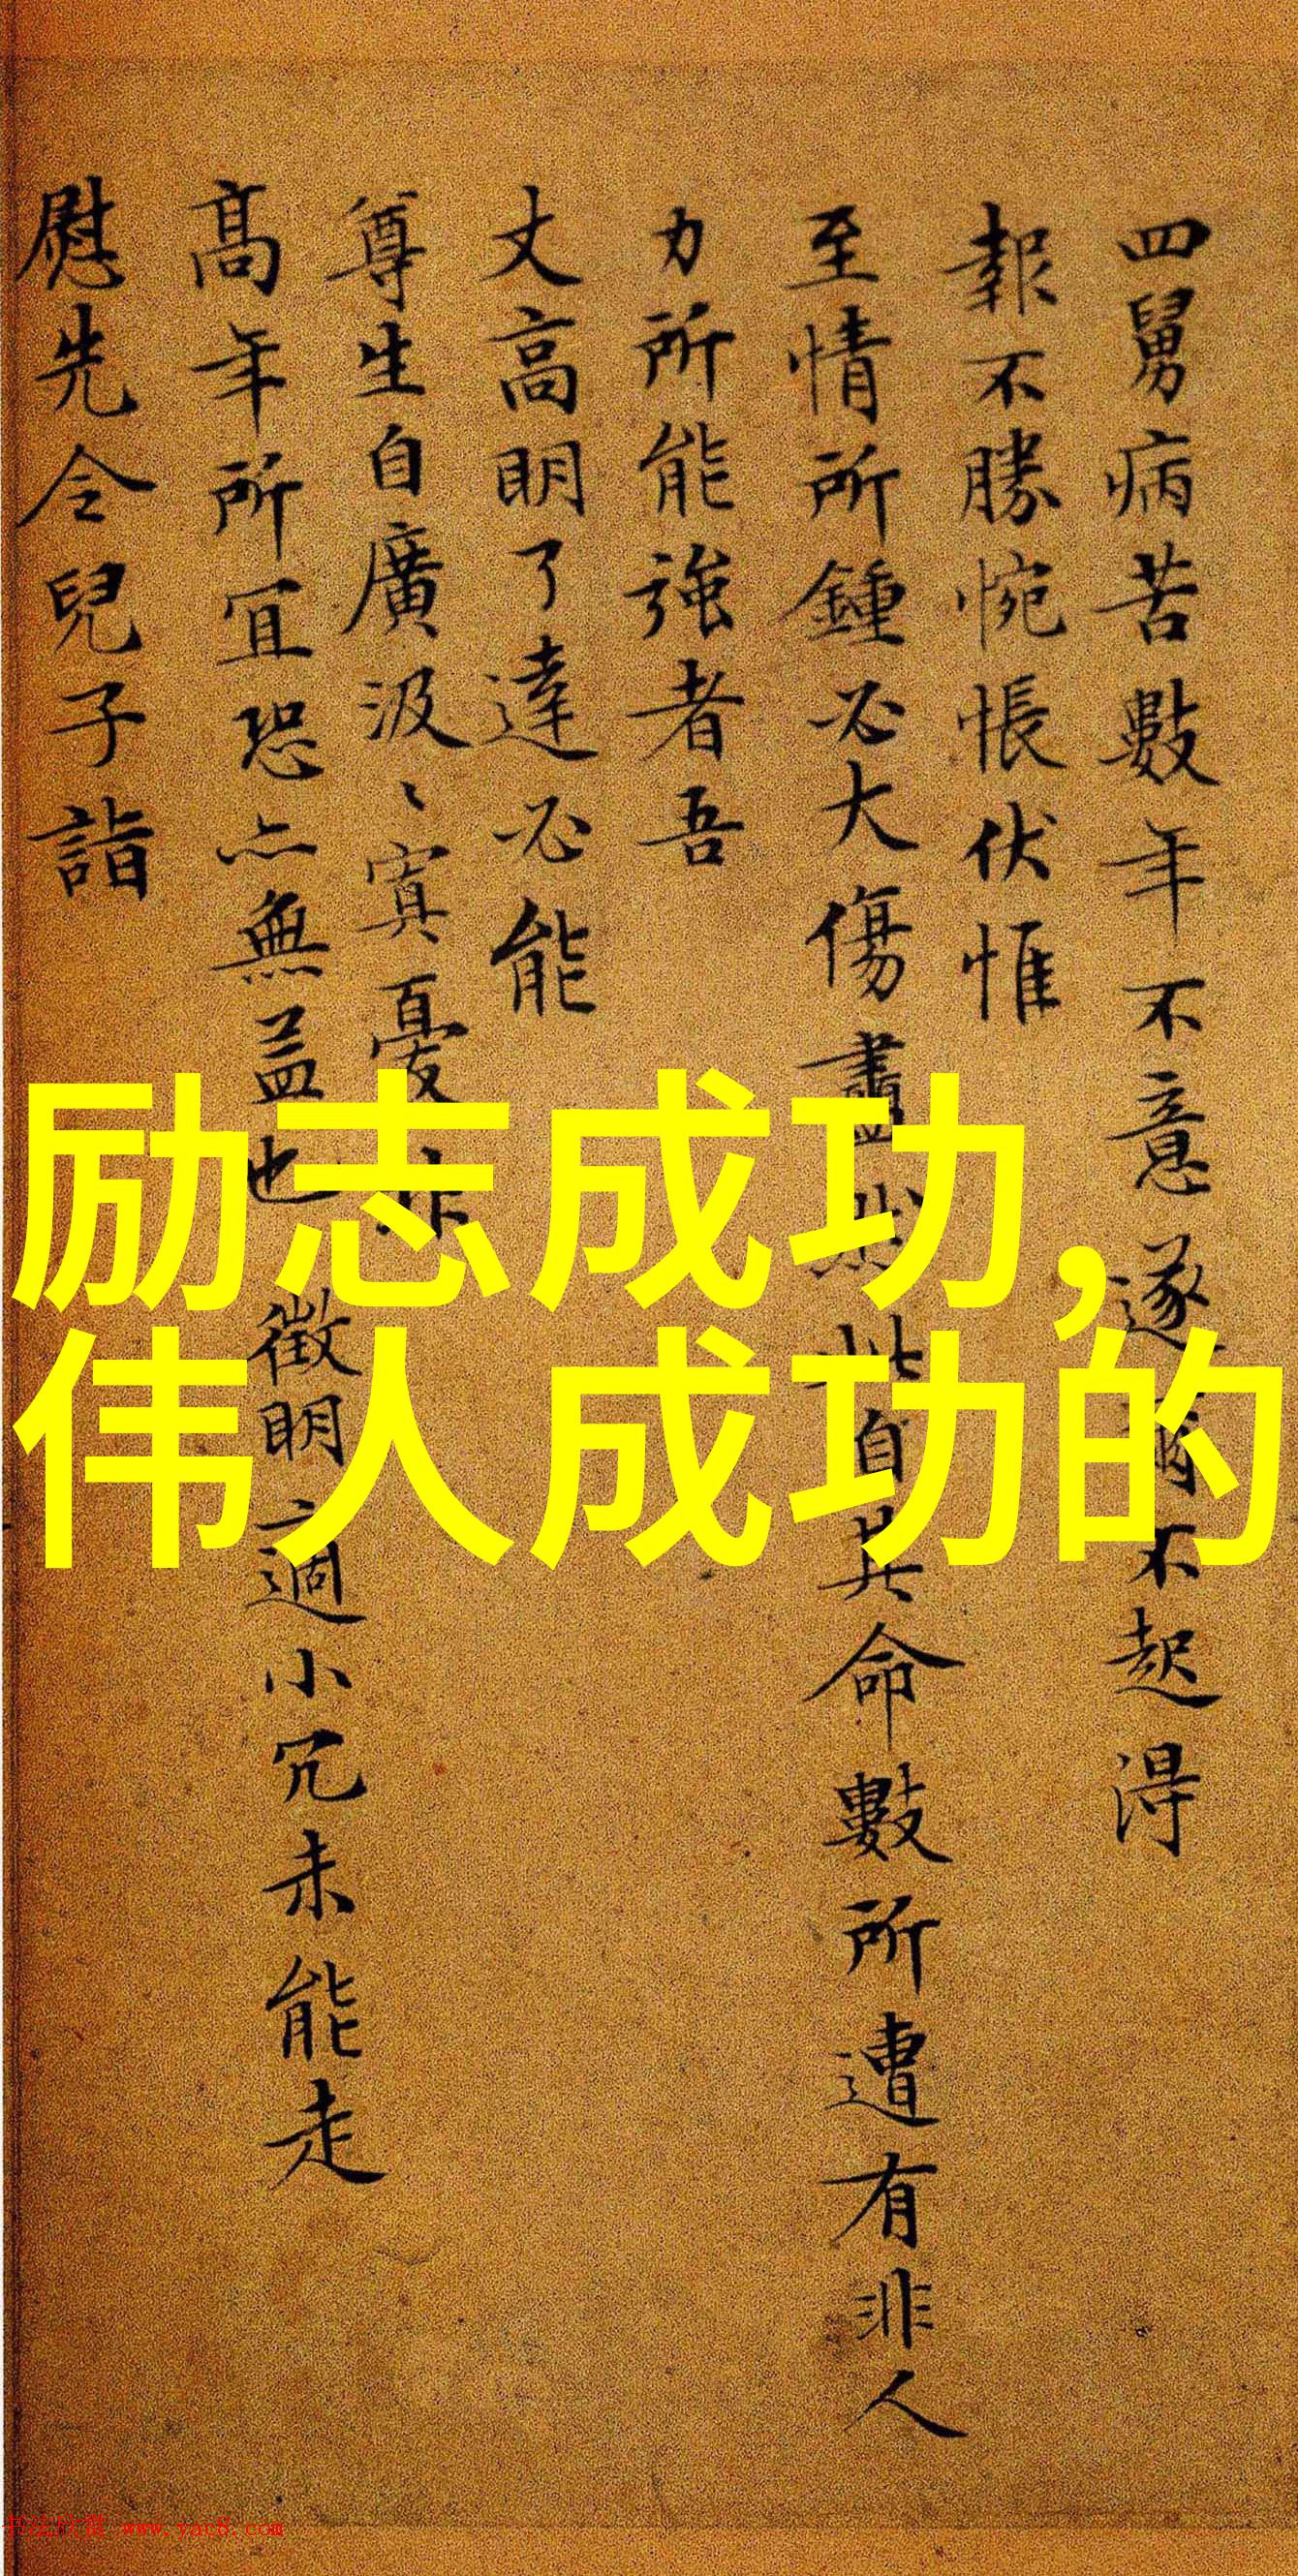 四舅病苦數年不意遂爾不起得
報不勝惋悵伏惟
至情所鍾必大傷盡然此自其命數所遭有非人
力所能強者吾
丈高明了達必能
尊生自廣汲〻寘憂非
高年所宜恐亦無益也徵明適小冗未能走
慰先令兒子詣
励志成功,
伟人成功的
书法欣赏 www.yac8.com